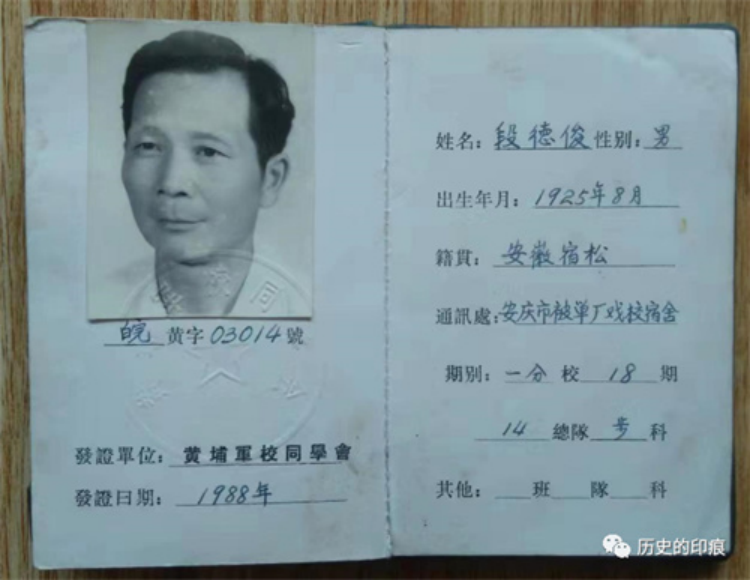 皖 黄字 03014 號
發證單位: 黄埔軍校同學會
發證日期: 1988年
姓名: 段德俊 性别: 男
出生年月: 1925年8月
籍貫: 安徽宿松
通訊處: 安庆市被单厂戏校宿舍
期别: 一分 校 18 期
14 總隊 步 科
其他: 班 隊 科
历史的印痕